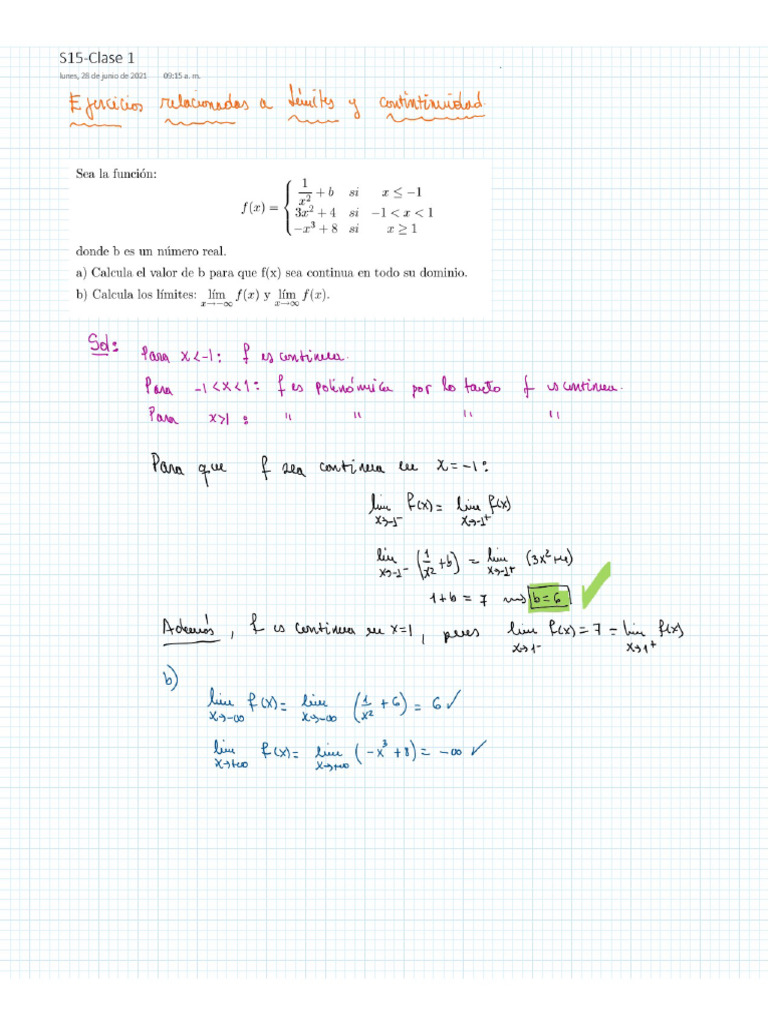 S15-Clase 1
lunes, 28 de junio de 2021 09:15 a. m.
Ejercicios relacionadas a límites y contintinuidad.
Sea la función:
f(x) = { 1/x² + b si x ≤ −1
3x² + 4 si −1 < x < 1
−x³ + 8 si x ≥ 1
donde b es un número real.
a) Calcula el valor de b para que f(x) sea continua en todo su dominio.
b) Calcula los límites: lím x→−∞ f(x) y lím x→∞ f(x).
Sol:
Para x<-1: f es continua.
Para -1<x<1: f es polinómica por lo tanto f es continua.
Para x>1: " " " "
Para que f sea continua en x=-1:
lim x→-1⁻ f(x) = lim x→-1⁺ f(x)
lim x→-1⁻ (1/x² + b) = lim x→-1⁺ (3x²+4)
1+b = 7 ⇝ b=6 ✓
Además, f es continua en x=1, pues lim x→1⁻ f(x) = 7 = lim x→1⁺ f(x)
b)
lim x→-∞ f(x) = lim x→-∞ (1/x² + 6) = 6 ✓
lim x→+∞ f(x) = lim x→+∞ (-x³ + 8) = -∞ ✓